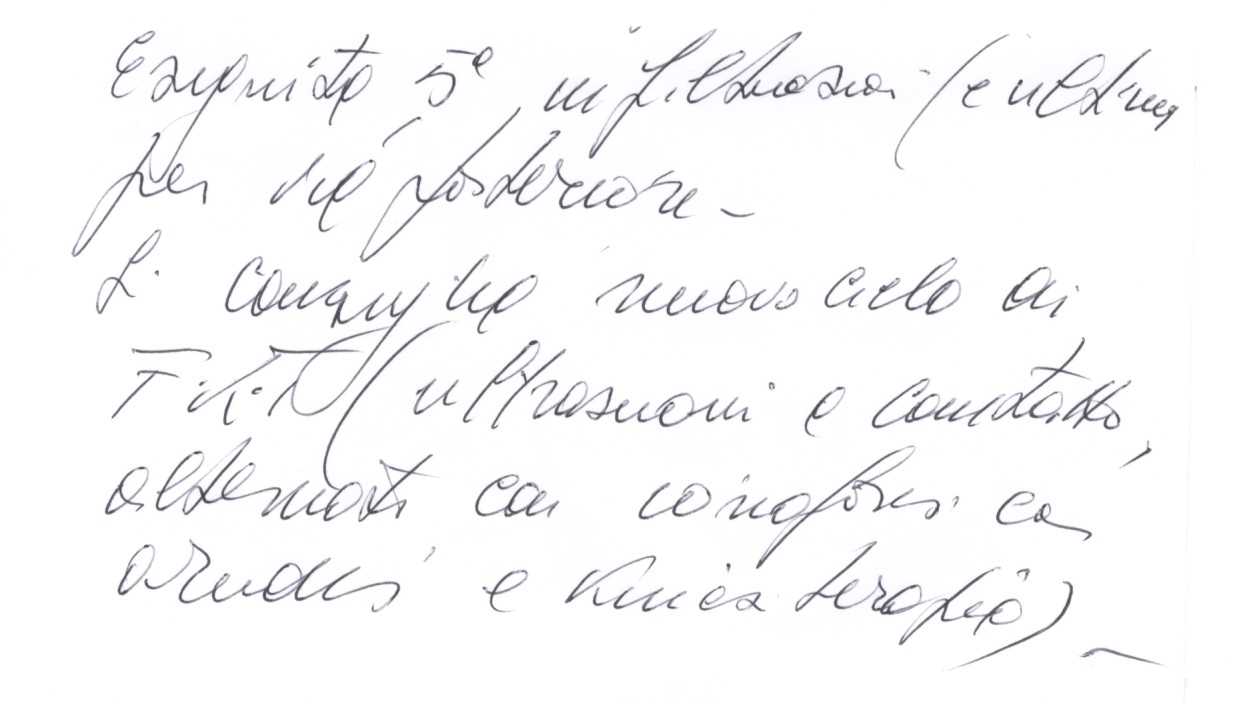 Eseguita 5° infiltrazioni (e ultima
per via posteriore -
Si consiglia nuovo ciclo di
F.K.T. (ultrasuoni a contatto,
alternati con ionoforesi con
e kinesiterapia) -